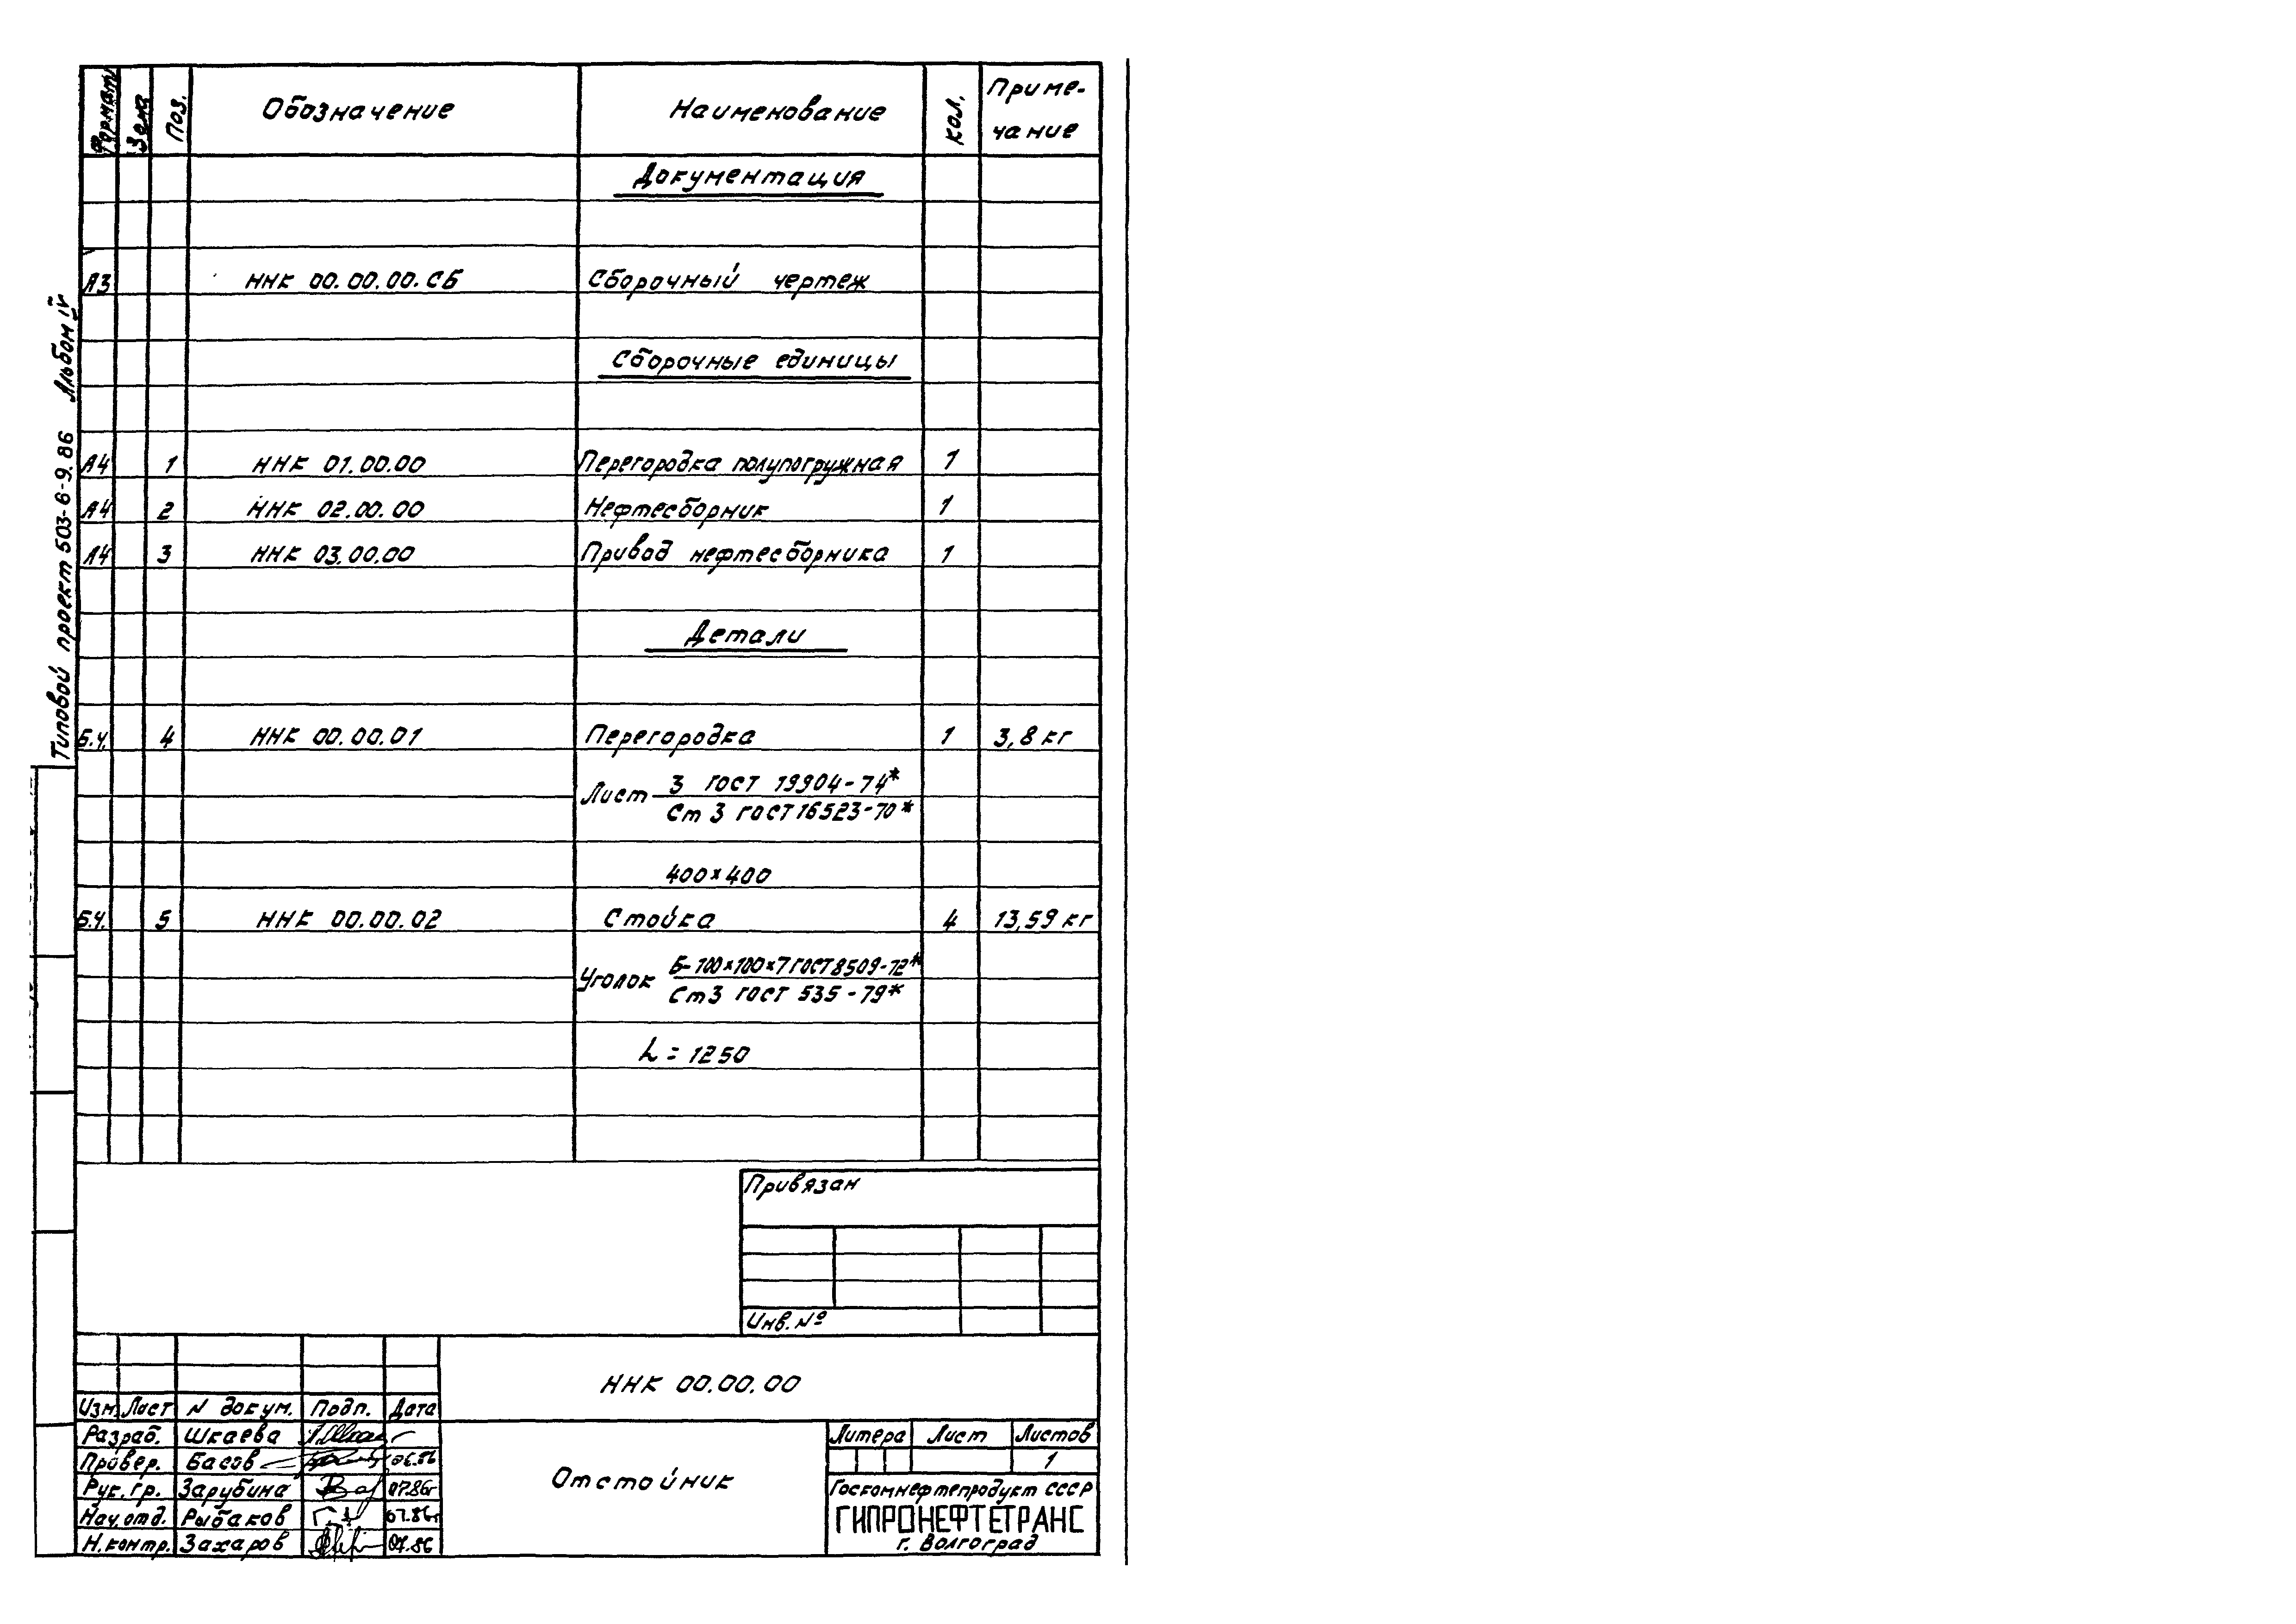 Типовой проект 503-6-9.86 Альбом IV
Формат Зона Поз. Обозначение Наименование Кол. Приме-
чание
Документация
А3 ННК 00.00.00.СБ Сборочный чертеж
Сборочные единицы
А4 1 ННК 01.00.00 Перегородка полупогружная 1
А4 2 ННК 02.00.00 Нефтесборник 1
А4 3 ННК 03.00.00 Привод нефтесборника 1
Детали
Б.Ч. 4 ННК 00.00.01 Перегородка 1 3,8 кг
Лист 3 ГОСТ 19904-74*
Ст 3 ГОСТ 16523-70*
400×400
Б.Ч. 5 ННК 00.00.02 Стойка 4 13,59 кг
Уголок Б-100×100×7 ГОСТ 8509-72*
Ст3 ГОСТ 535-79*
L = 1250
Привязан
Инв. №
ННК 00.00.00
Изм. Лист N докум. Подп. Дата
Разраб. Шкаева
Провер. Басов 06.86
Рук. гр. Зарубина 07.86г
Нач. отд. Рыбаков 07.86г
Н. контр. Захаров 07.86
Отстойник
Литера Лист Листов
1
Госкомнефтепродукт СССР
ГИПРОНЕФТЕТРАНС
г. Волгоград